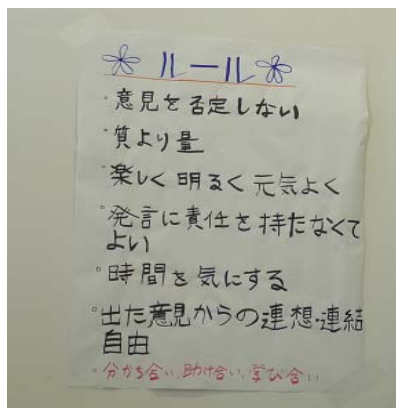 ルール
・意見を否定しない
・質より量
・楽しく 明るく 元気よく
・発言に責任を持たなくて
よい
・時間を気にする
・出た意見からの連想・連結
自由
・分かち合い、助け合い、学び合い